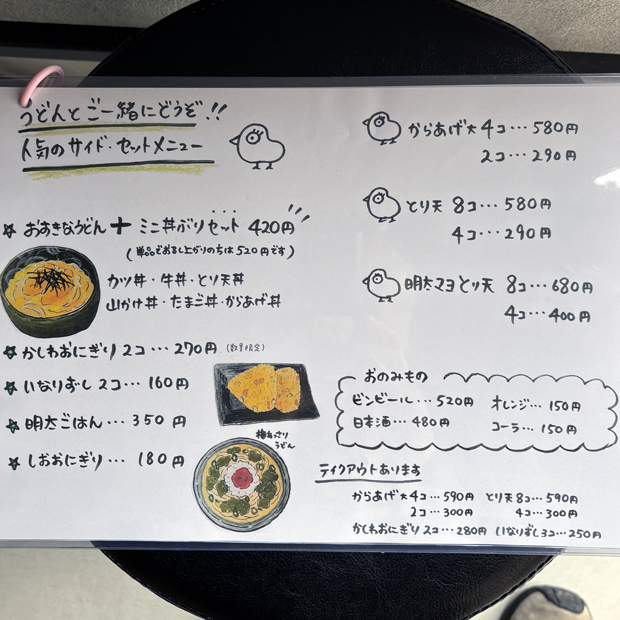 うどんとご一緒にどうぞ!!
人気のサイド・セットメニュー
おすきなうどん + ミニ丼ぶりセット 420円
(単品でお召し上がりのちは520円です)
カツ丼・牛丼・とり天丼
山かけ丼・たまご丼・からあげ丼
かしわおにぎり 2コ…270円 (数量限定)
いなりずし 2コ…160円
明太ごはん…350円
しおおにぎり…180円
梅あっさり
うどん
からあげ大 4コ…580円
2コ…290円
とり天 8コ…580円
4コ…290円
明太マヨとり天 8コ…680円
4コ…400円
おのみもの
ビンビール…520円 オレンジ…150円
日本酒…480円 コーラ…150円
テイクアウトあります
からあげ大4コ…590円 とり天8コ…590円
2コ…300円 4コ…300円
かしわおにぎり2コ…280円 いなりずし3コ…250円